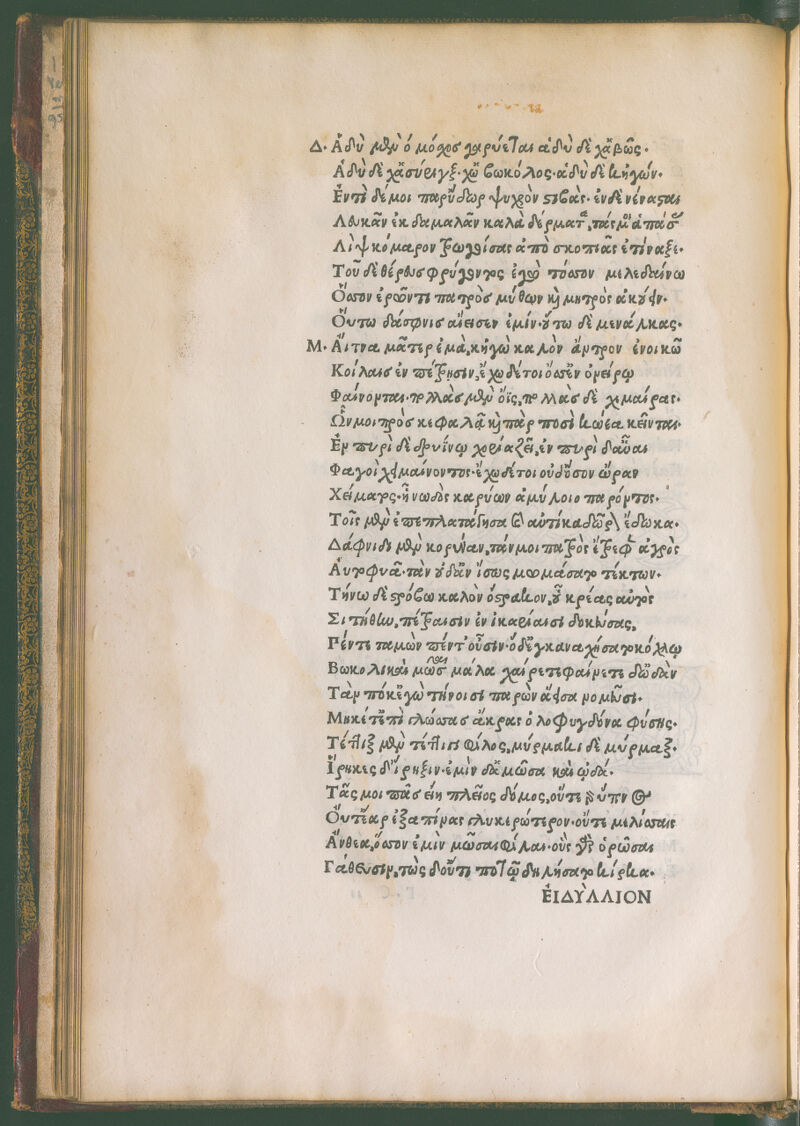 Δ. Ἁδὺ μὲν ὁ μόσχος γαρύεται ἁδὺ δὲ χἄ βῶς.
Ἁδὺ δὲ χἀ σύριγξ. χὠ βωκόλος. ἁδὺ δὲ κἠγών.
Ἐντὶ δέ μοι παρ' ὕδωρ ψυχρὸν στιβὰς. ἐν δὲ νένασται
Λευκᾶν ἐκ δαμαλᾶν καλὰ δέρματα, τάς μοι ἁπάσας
Λὶψ κόμαρον τρωγοίσας ἀπὸ σκοπιᾶς ἐτίναξε.
Τοῦ δὲ θέρευς φρύγοντος ἐγὼ τόσσον μελεδαίνω
Ὅσσον ἐρῶντι πατρὸς μύθων καὶ μητρὸς ἀκούειν.
Οὕτω δάφνις ἄεισεν ἐμίν. οὕτω δὲ μενάλκας.
Μ. Αἴτνα μᾶτερ ἐμὰ, κἠγὼ καλὸν ἄντρον ἐνοικῶ
Κοίλαις ἐν πέτρῃσιν, ἔχω δέ τοι ὅσσ' ἐν ὀνείρῳ
Φαίνονται. πολλὰς μὲν ὄϊς, πολλὰς δὲ χιμαίρας.
Ὧν μοι πρὸς κεφαλᾷ καὶ πὰρ ποσὶ κώεα κεῖνται.
Ἐν πυρὶ δὲ δρυίνῳ χορία ζεῖ, ἐν πυρὶ δ' αὖαι
Φαγοὶ χειμαίνοντος. ἔχω δέ τοι οὐδ' ὅσον ὥραν
Χείματος. ἢ νωδὸς καρύων ἀμύλοιο παρόντος.
Τοῖς μὲν ἐπεπλατάγησα καὶ αὐτίκα δῶρον ἔδωκα.
Δάφνιδι μὲν κορύναν, τάν μοι πατρὸς ἔτρεφεν ἀγρὸς
Αὐτοφυᾶ. τὰν οὐδ' ἂν ἴσως μωμάσατο τέκτων.
Τήνῳ δὲ στρόβω καλὸν ὄστρακον, οὗ κρέας αὐτὸς
Σιτήθην, πέτραισιν ἐν ἰκαρίαισι δοκεύσας,
Πέντε ταμὼν πέντ' οὖσιν. ὁ δ' ἐγκαναχήσατο κόχλῳ
Βωκολικαὶ μῶσαι μάλα χαίρετε φαίνετε δ' ᾠδὰν
Τὰν πόκ' ἐγὼ τήνοισι παρὼν ἄεισα νομεῦσι.
Μηκέτ' ἐπὶ γλώσσας ἄκρας ὀλοφυγδόνα φύσῃς.
Τέττιξ μὲν τέττιγι φίλος, μύρμακι δὲ μύρμαξ.
Ἴρηκες δ' ἴρηξιν. ἐμὶν δ' ἁ μῶσα καὶ ᾠδά.
Τᾶς μοι πᾶς εἴη πλεῖος δόμος, οὔτε γὰρ ὕπνος
Οὔτ' ἔαρ ἐξαπίνας γλυκερώτερον. οὔτε μελίσσαις
Ἄνθεα, ὅσσον ἐμὶν μῶσαι φίλαι. οὓς γὰρ ὁρῶσαι
Γαθεῦσιν, τὼς δ' οὔτι ποτῷ δηλήσατο κίρκα.
ΕἸΔΎΛΛΙΟΝ